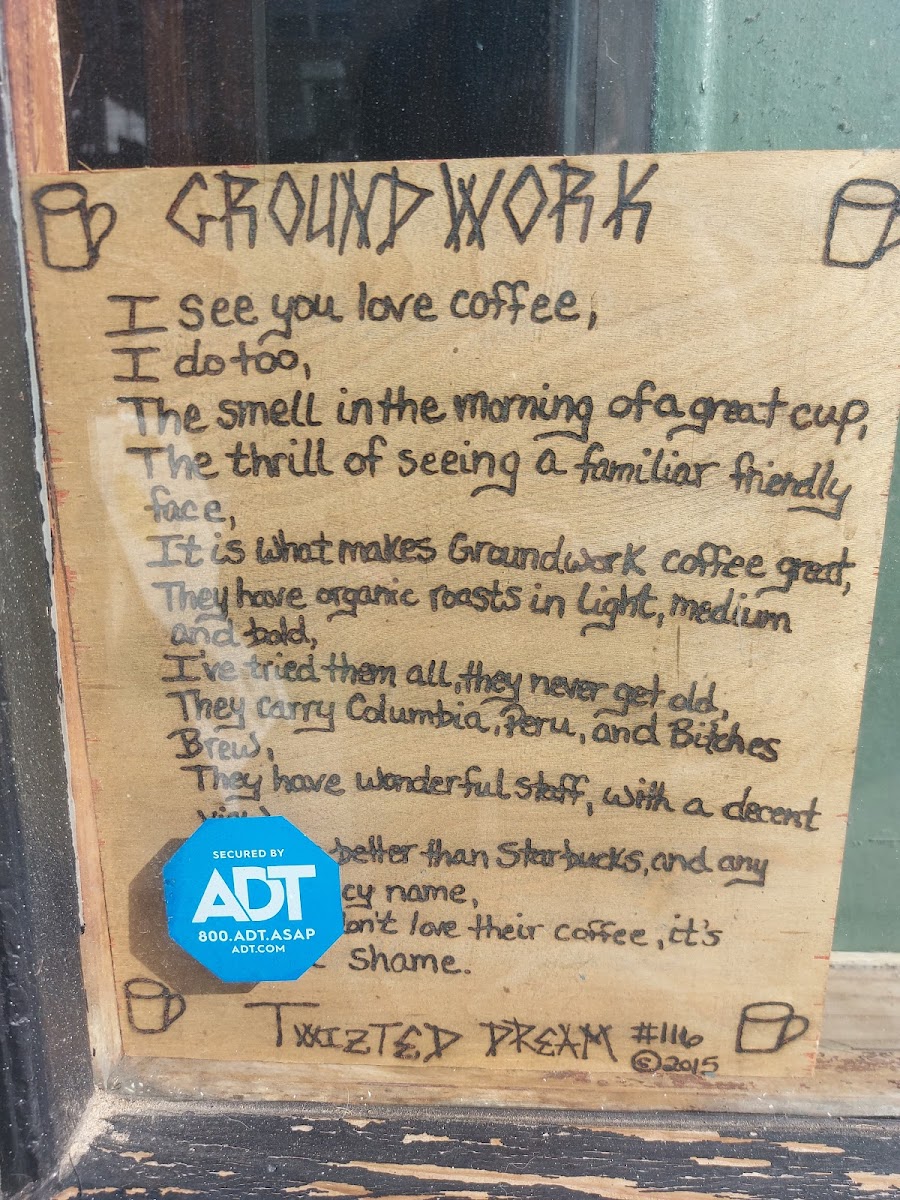 GROUNDWORK
I see you love coffee,
I do too,
The smell in the morning of a great cup,
The thrill of seeing a familiar friendly
face,
It is what makes Groundwork coffee great,
They have organic roasts in light, medium
and bold,
I've tried them all, they never get old,
They carry Columbia, Peru, and Bitches
Brew,
They have wonderful staff, with a decent
better than Starbucks, and any
cy name,
on't love their coffee, it's
Shame.
SECURED BY
ADT
800.ADT.ASAP
ADT.COM
TWIZTED DREAM #116
©2015